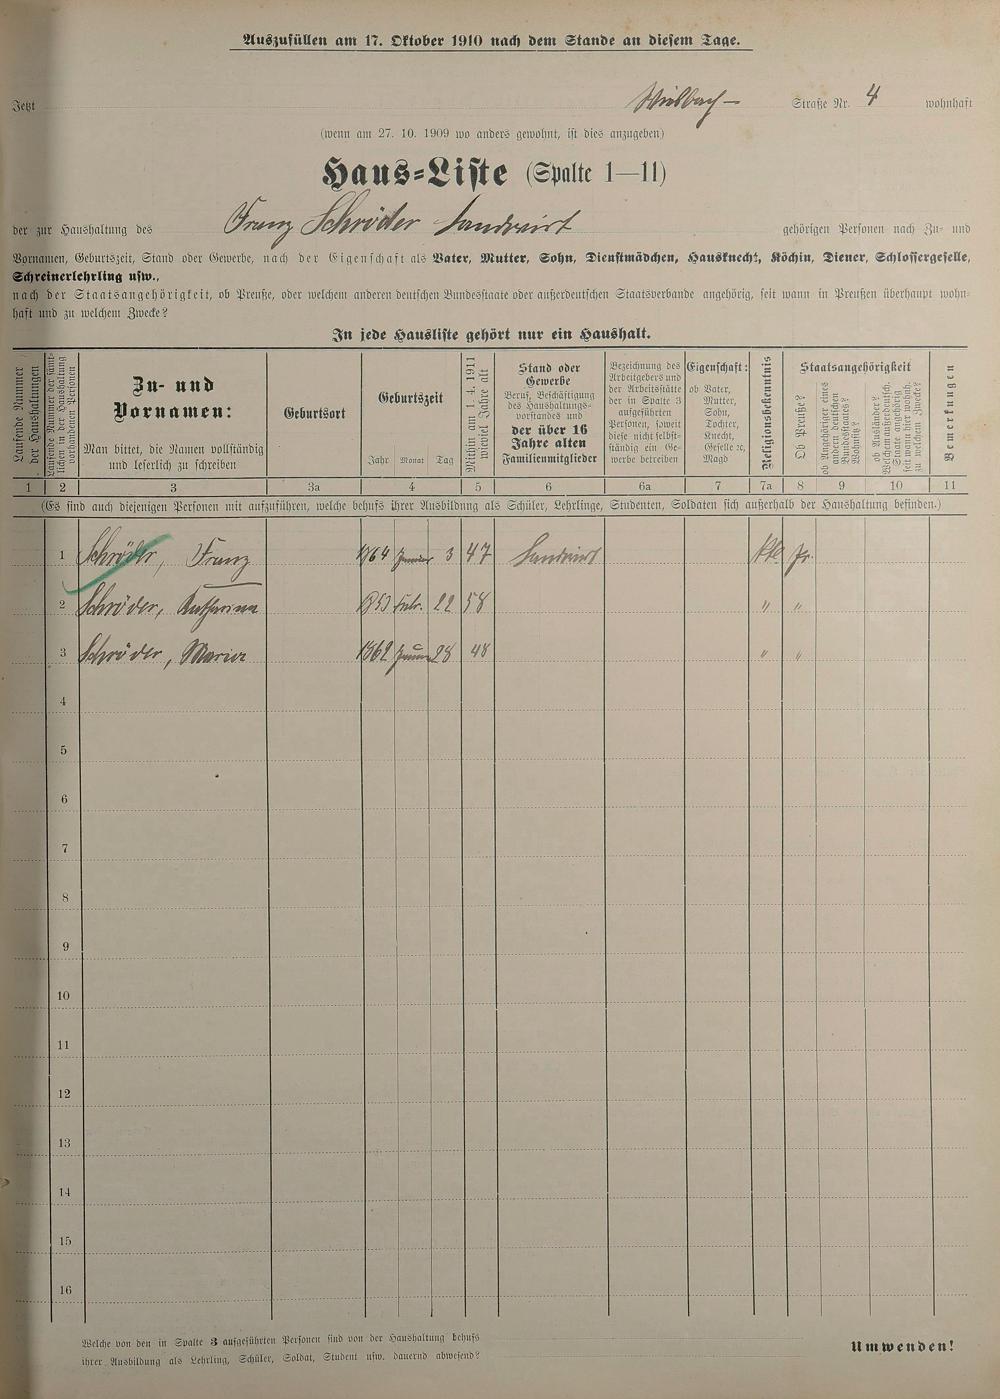 Auszufüllen am 17. Oktober 1910 nach dem Stande an diesem Tage.
Jetzt Straße Nr. 4 wohnhaft
(wenn am 27. 10. 1909 wo anders gewohnt, ist dies anzugeben)
Haus-Liste (Spalte 1—11)
der zur Haushaltung des Franz Schröder Landwirt gehörigen Personen nach Zu- und
Vornamen, Geburtszeit, Stand oder Gewerbe, nach der Eigenschaft als Vater, Mutter, Sohn, Dienstmädchen, Hausknecht, Köchin, Diener, Schlossergeselle,
Schreinerlehrling usw.,
nach der Staatsangehörigkeit, ob Preuße, oder welchem anderen deutschen Bundesstaate oder außerdeutschen Staatsverbande angehörig, seit wann in Preußen überhaupt wohn-
haft und zu welchem Zwecke?
In jede Hausliste gehört nur ein Haushalt.
Laufende Nummer
der Haushaltungen
Laufende Nummer der sämt-
lichen in der Haushaltung
vorhandenen Personen
Zu- und
Vornamen:
Man bittet, die Namen vollständig
und leserlich zu schreiben
Geburtsort
Geburtszeit
Jahr Monat Tag
Mithin am 1. 4. 1911
wieviel Jahre alt
Stand oder
Gewerbe
Beruf, Beschäftigung
des Haushaltungs-
vorstandes und
der über 16
Jahre alten
Familienmitglieder
Bezeichnung des
Arbeitgebers und
der Arbeitsstätte
der in Spalte 3
aufgeführten
Personen, soweit
diese nicht selbst-
ständig ein Ge-
werbe betreiben
Eigenschaft:
ob Vater,
Mutter,
Sohn,
Tochter,
Knecht,
Geselle ꝛc,
Magd
Religionsbekenntnis
Staatsangehörigkeit
Ob Preuße?
ob Angehöriger eines
andern deutschen
Bundesstaates?
Wohnsitz?
ob Ausländer?
Welchem außerdeutsch.
Staate angehörig
seit wann hier wohnh.
zu welchem Zwecke?
Bemerkungen
1 2 3 3a 4 5 6 6a 7 7a 8 9 10 11
(Es sind auch diejenigen Personen mit aufzuführen, welche behufs ihrer Ausbildung als Schüler, Lehrlinge, Studenten, Soldaten sich außerhalb der Haushaltung befinden.)
1 Schröder, Franz 1864 Januar 3 47 Landwirt kth. Pr.
2 Schröder, Katharina 1853 Febr. 22 58 " "
3 Schröder, Maria 1862 28 48 " "
4
5
6
7
8
9
10
11
12
13
14
15
16
Welche von den in Spalte 3 aufgeführten Personen sind von der Haushaltung behufs
ihrer Ausbildung als Lehrling, Schüler, Soldat, Student usw. dauernd abwesend?
Umwenden!